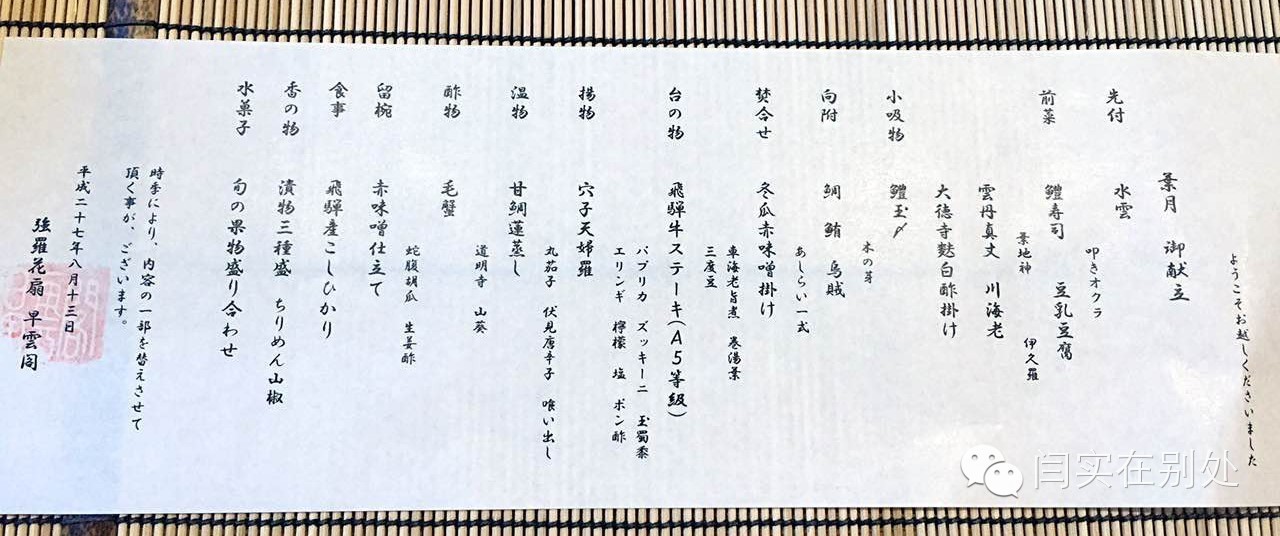 ようこそお越しくださいました
葉月 御献立
先付 水雲
叩きオクラ
前菜 鱧寿司 豆乳豆腐
葉地神 伊久羅
雲丹真丈 川海老
大徳寺麩白酢掛け
小吸物 鱧玉〆
木の芽
向附 鯛 鮪 烏賊
あしらい一式
焚合せ 冬瓜赤味噌掛け
車海老旨煮 巻湯葉
三度豆
台の物 飛騨牛ステーキ(A5等級)
パプリカ ズッキーニ 玉蜀黍
エリンギ 檸檬 塩 ポン酢
揚物 穴子天婦羅
丸茄子 伏見唐辛子 喰い出し
温物 甘鯛蓮蒸し
道明寺 山葵
酢物 毛蟹
蛇腹胡瓜 生姜酢
留椀 赤味噌仕立て
食事 飛騨産こしひかり
香の物 漬物三種盛 ちりめん山椒
水菓子 旬の果物盛り合わせ
時季により、内容の一部を替えさせて
頂く事が、ございます。
平成二十七年八月十三日
強羅花扇 早雲閣
闫实在别处